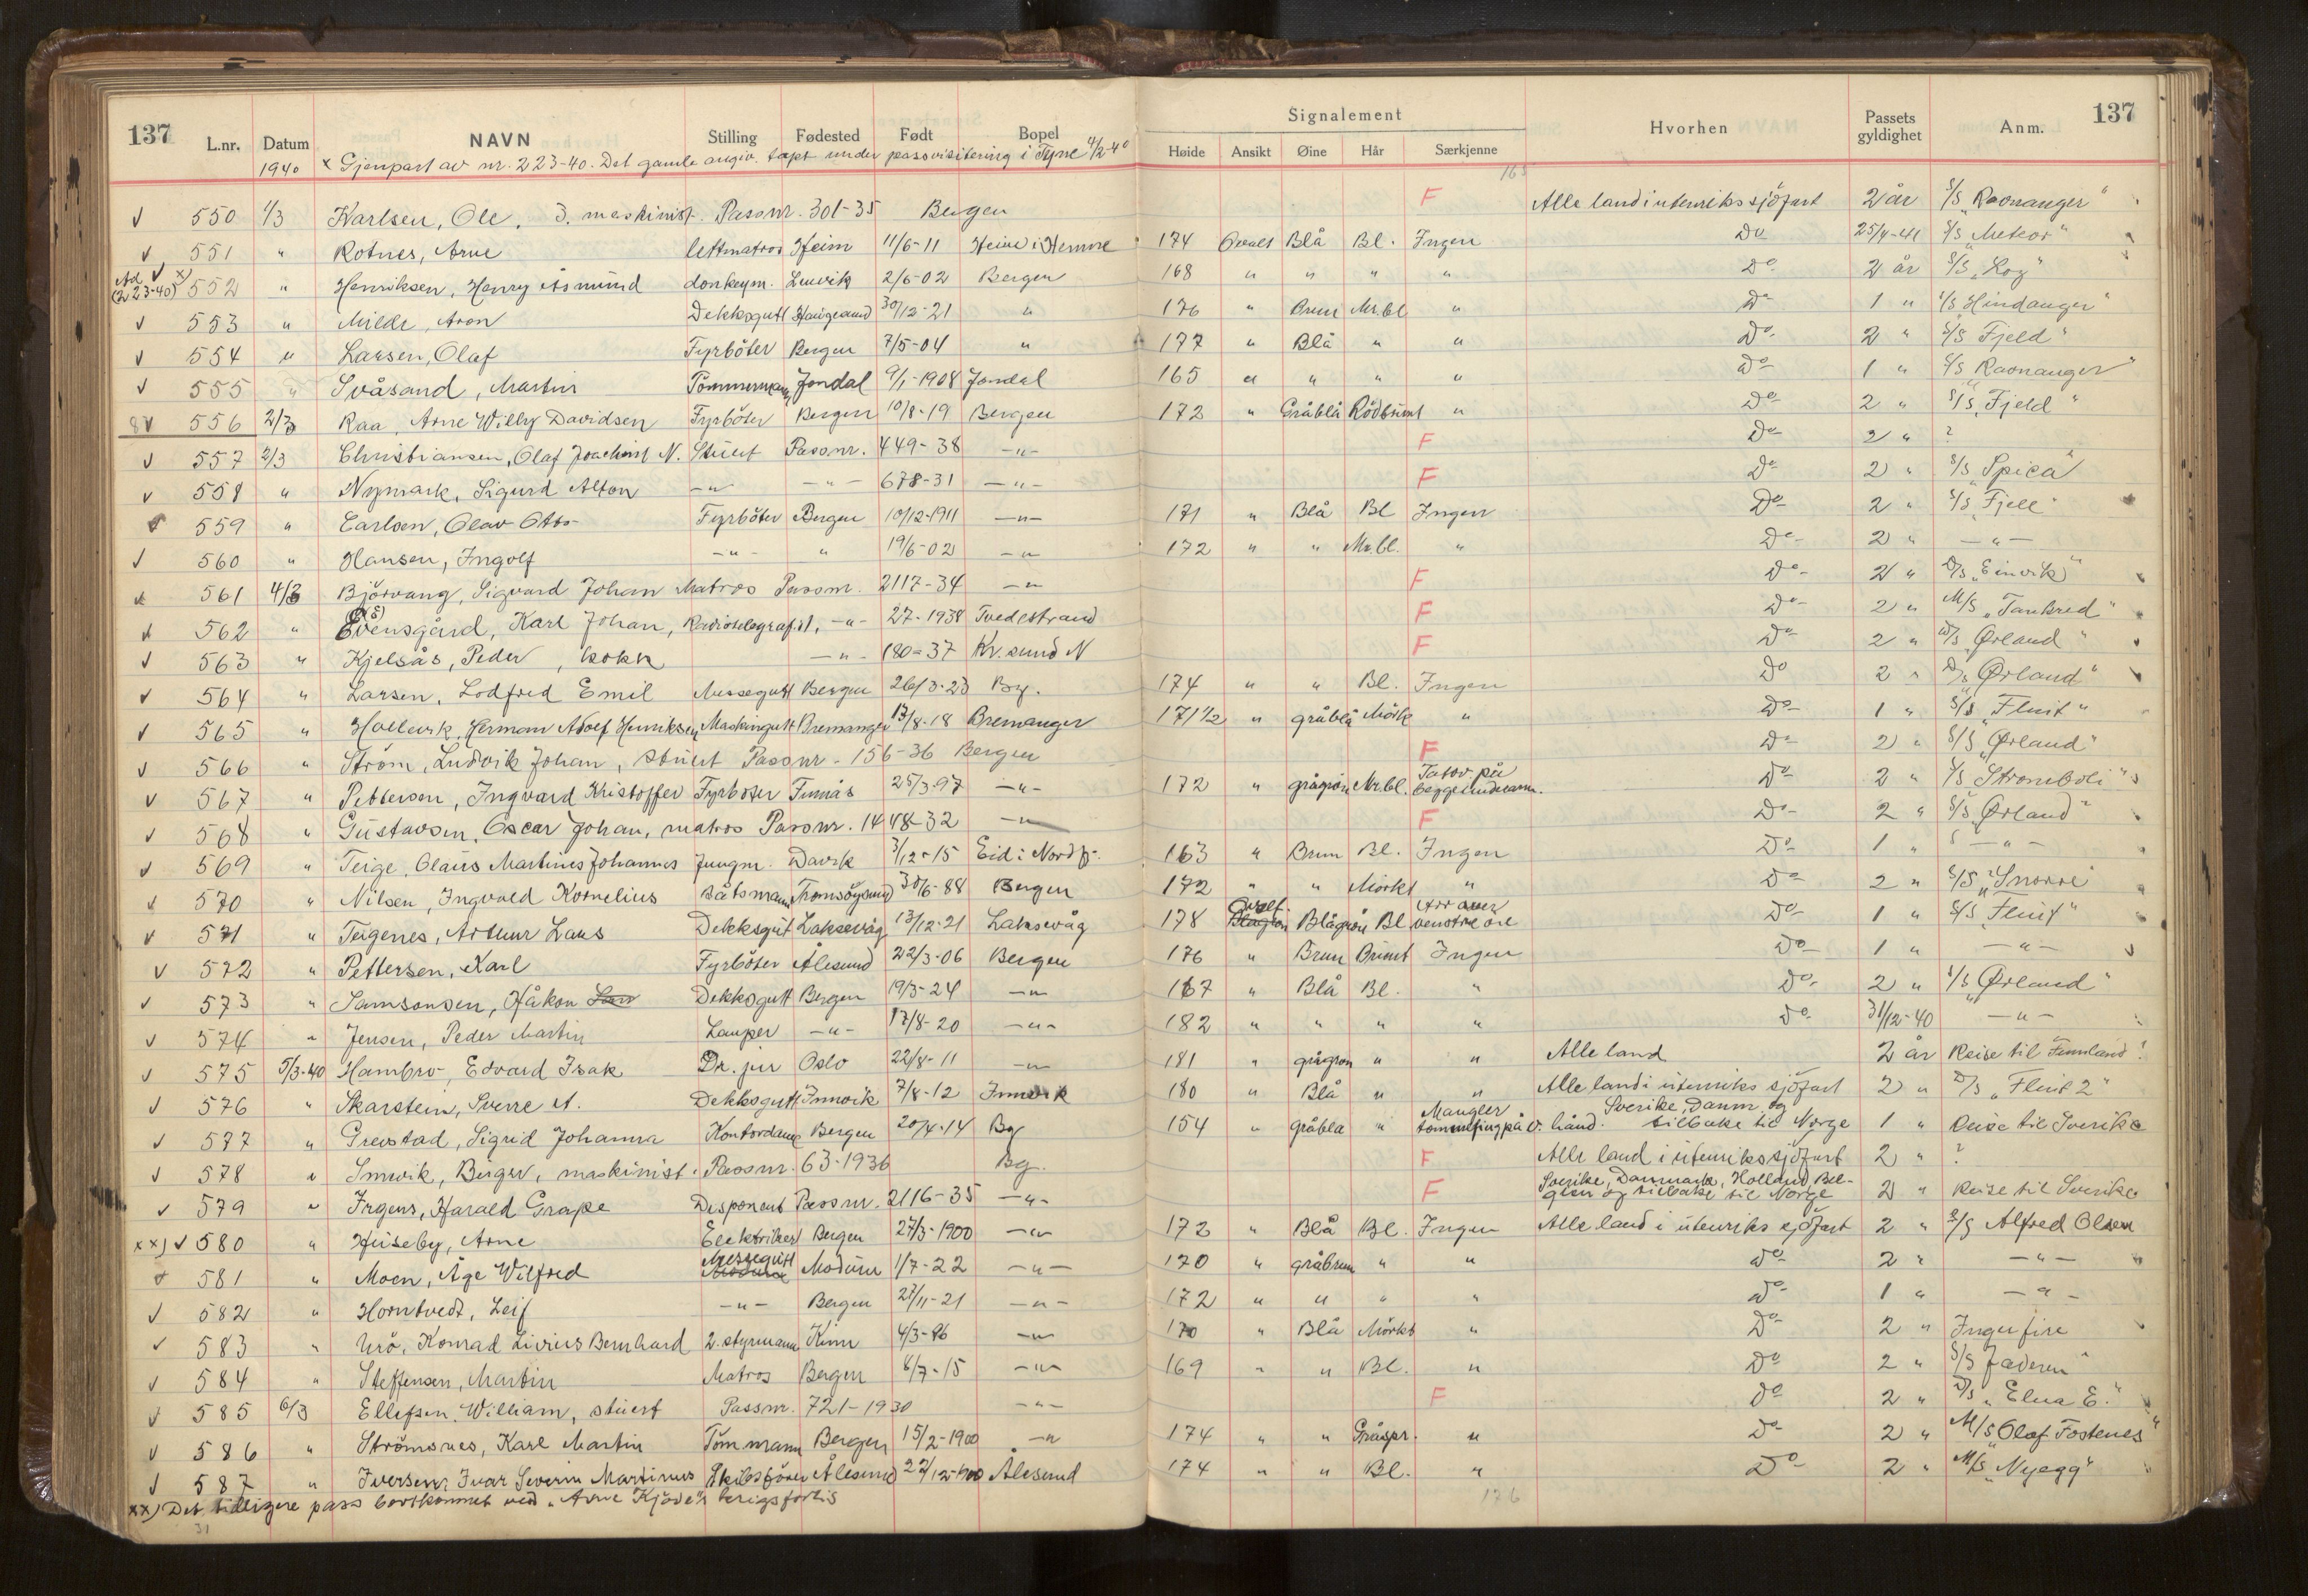 137 Signalement 137
L.nr. Datum NAVN Stilling Fødested Født Bopel Høide Ansikt Øine Hår Særkjenne Hvorhen Passets gyldighet Anm.
1940 x Gjenpart av nr. 223-40. Det gamle angiv. tapt under passvisitering i Tyne 4/2-40
165
√ 550 1/3 Karlsen, Ole, 3. maskinist. Passnr. 301-35 Bergen F Alle land i utenriks sjöfart 2 år S/S "Raonanger"
√ 551 " Rotnes, Arne lettmatros Heim 11/6-11 Heim i Hemne 174 Ovalt Blå Bl. Ingen Do 25/4-41 S/S "Meteor"
Ad (223-40) √ x) 552 " Henriksen, Henry Åsmund donkeym. Lenvik 2/6-02 Bergen 168 " " " " Do 2 år S/S "Log"
√ 553 " Milde, Aron Dekksgutt Haugesund 30/12-21 " 176 " Brun Mr.bl " Do 1 " S/S Hindanger"
√ 554 " Larsen, Olaf Fyrböter Bergen 7/5-04 " 177 " Blå " " Do 2 " S/S Fjeld"
√ 555 " Svåsand, Martin Tömmermann Jondal 9/1-1908 Jondal 165 " " " " Do 1 " S/S "Raonanger"
8√ 556 2/3 Raa, Arne Willy Davidsen Fyrböter Bergen 10/8-19 Bergen 172 " Gråblå Rödbrunt " Do 2 " S/S "Fjeld"
√ 557 2/3 Christiansen, Olaf Joachim N. Stuert Passnr. 449-38 -"- F Do 2 " ?
√ 558 " Nymark, Sigurd Alfon -"- -"- 678-31 -"- F Do 2 " S/S "Spica"
√ 559 " Carlsen, Olav Otto Fyrböter Bergen 10/12-1911 -"- 171 " Blå Bl Ingen Do 2 " S/S "Fjell"
√ 560 " Hansen, Ingolf -"- " 19/6-02 -"- 172 " " Mr.bl. " Do 2 " -"-
√ 561 4/3 Björvang, Sigvard Johan Matros Passnr. 2117-34 -"- F Do 2 " D/S "Einvik"
√ 562 " Evensgård, Karl Johan, Radiotelegrafist, -"- 27-1938 Tvedestrand F Do 2 " M/S "Tankred"
√ 563 " Kjelsås, Peder, kokk -"- 180-37 Kr.sund N F Do 2 " D/S "Ørland"
√ 564 " Larsen, Lodfred Emil Messegutt Bergen 26/3-23 Bg. 174 " " Bl. Ingen Do 2 " D/S "Ørland"
√ 565 " Hollevik, Herman Adolf Henriksen Maskingutt Bremanger 13/8-18 Bremanger 171 1/2 " gråblå Mörk " Do 1 " S/S "Fluit"
√ 566 " Ström, Ludvik Johan, stuert Passnr. 156-36 Bergen F Do 2 " S/S "Ørland"
√ 567 " Pettersen, Ingvard Kristoffer Fyrböter 25/3-97 -"- 172 " grågrön Mr.bl. Tatov. på begge underarm. Do 2 " S/S Stromboli"
√ 568 " Gustavsen, Oscar Johan, matros Passnr. 1448-32 -"- F Do 2 " S/S "Ørland"
√ 569 " Teige, Olaus Martinus Johannes Jungm. Davik 3/12-15 Eid i Nordfj. 163 " Brun Bl. Ingen Do 1 " -"-
√ 570 " Nilsen, Ingvald Kornelius Båtsmann Tromsöysund 30/6-88 Bergen 172 " " Mörkt " Do 2 " S/S "Snorre"
√ 571 " Teigenes, Arthur Laus Dekksgut Laksevåg 13/12-21 Laksevåg 178 Ovalt Blågrön Bl Arr over venstre öre Do 1 " S/S "Fluit"
√ 572 " Pettersen, Karl Fyrböter Ålesund 22/3-06 Bergen 176 " Brun Brunt Ingen Do 1 " -"-
√ 573 " Samsonsen, Håkon Dekksgutt Bergen 19/3-24 -"- 167 " Blå Bl. " Do 2 " S/S "Ørland"
√ 574 " Jensen, Peder Martin Lemper -"- 17/8-20 -"- 182 " " " " Do 31/12-40 -"-
√ 575 5/3-40 Hambro, Edvard Isak Dr. jur Oslo 22/8-11 -"- 181 " grågrön " " Alle land 2 år Reise til Finnland!
√ 576 " Skarstein, Sverre A. Dekksgutt Innvik 7/8-12 Innvik 180 " Blå " " Alle land i utenriks sjöfart 2 " D/S "Fluit 2"
√ 577 " Grevstad, Sigrid Johanna Kontordame Bergen 20/4-14 Bg 154 " gråblå " Mangler tommelfing på v. hånd. Sverike, Danm. og tilbake til Norge 1 " Reise til Sverike
√ 578 " Smevik, Birger, maskinist. Passnr. 63-1936 Bg. F Alle land i utenrikssjöfart 2 " ?
√ 579 " Irgens, Harald Grape Disponent Passnr. 2116-35 -"- F Sverike, Danmark, Holland, Belgien og tilbake til Norge 2 " Reise til Sverike
xx) √ 580 " Huseby, Arne Elektriker Bergen 27/3-1900 -"- 172 " Blå Bl. Ingen Alle land i utenriks sjöfart 2 " S/S Alfred Olsen
√ 581 " Moen, Åge Wilfred Messegutt Modum 1/7-22 -"- 170 " gråbrun " " Do 2 " -"-
√ 582 " Horntvedt, Leif -"- Bergen 27/11-21 -"- 172 " " " " Do 1 " -"-
√ 583 " Urö, Konrad Livius Bernhard 2. styrmann Kinn 4/3-96 -"- 170 " Blå Mörkt " Do 2 " Ingerfire
√ 584 " Steffensen, Martin Matros Bergen 8/7-15 -"- 169 " " Bl. " Do 2 " S/S Jæderen"
√ 585 6/3 Ellefsen, William, stuert Passnr. 721-1930 -"- F Do 2 " D/S "Elna E."
√ 586 " Strömsnes, Karl Martin Töm.mann Bergen 15/2-1900 -"- 174 " " Gråspr. " Do 2 " M/S "Olaf Fostenes"
√ 587 " Iversen, Ivar Severin Martinus Skibsförer Ålesund 22/12-1900 Ålesund 174 " " Bl. " Do 2 " M/S "Nyegg"
xx) Det tidligere pass bortkommet ved "Arne Kjöde"s krigsforlis
31 176